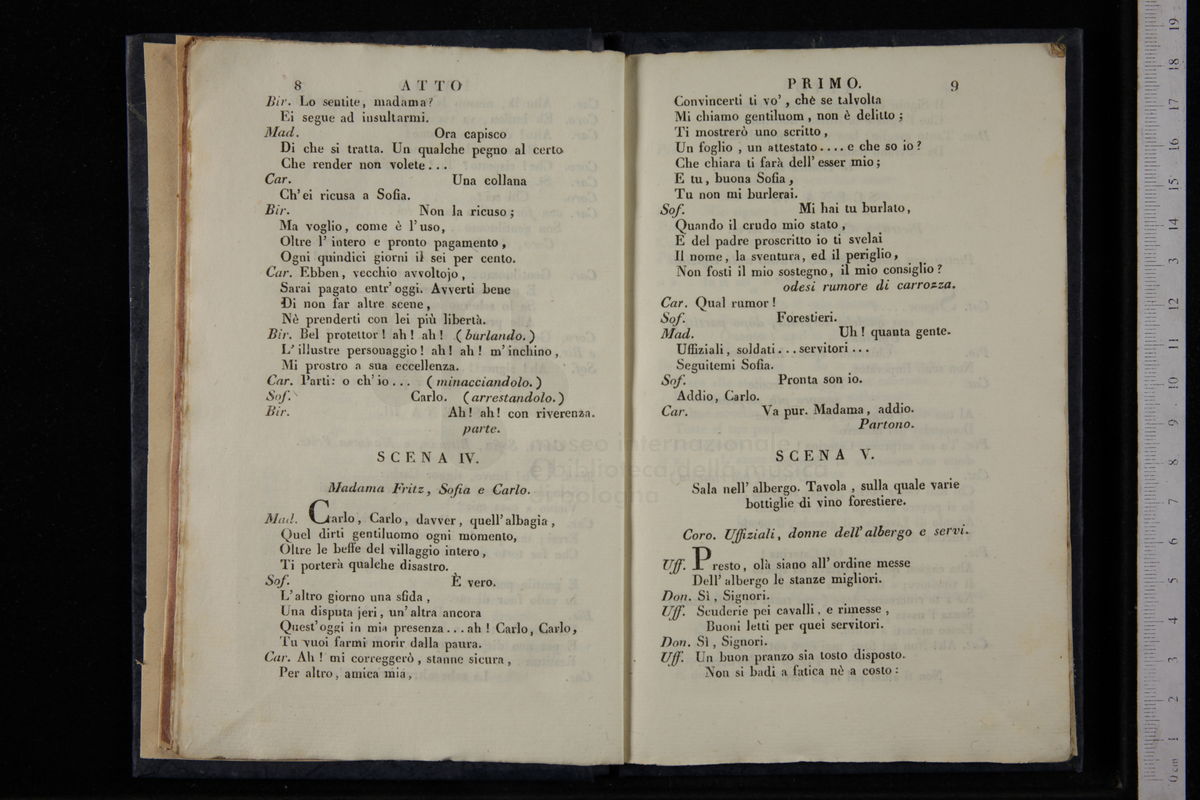 8 ATTO
Bir. Lo sentite, madama?
Ei segue ad insultarmi.
Mad. Ora capisco
Di che si tratta. Un qualche pegno al certo
Che render non volete...
Car. Una collana
Ch' ei ricusa a Sofia.
Bir. Non la ricuso;
Ma voglio, come è l'uso,
Oltre l' intero e pronto pagamento,
Ogni quindici giorni il sei per cento.
Car. Ebben, vecchio avvoltojo,
Sarai pagato entr' oggi. Avverti bene
Di non far altre scene,
Nè prenderti con lei più libertà.
Bir. Bel protettor! ah! ah! (burlando.)
L' illustre personaggio! ah! ah! m' inchino,
Mi prostro a sua eccellenza.
Car. Parti: o ch' io... (minacciandolo.)
Sof. Carlo. (arrestandolo.)
Bir. Ah! ah! con riverenza.
parte.
SCENA IV.
Madama Fritz, Sofia e Carlo.
Mad. Carlo, Carlo, davver, quell' albagia,
Quel dirti gentiluomo ogni momento,
Oltre le beffe del villaggio intero,
Ti porterà qualche disastro.
Sof. È vero.
L' altro giorno una sfida,
Una disputa jeri, un' altra ancora
Quest' oggi in mia presenza... ah! Carlo, Carlo,
Tu vuoi farmi morir dalla paura.
Car. Ah! mi correggerò, stanne sicura,
Per altro, amica mia,
PRIMO. 9
Convincerti ti vo', chè se talvolta
Mi chiamo gentiluom, non è delitto;
Ti mostrerò uno scritto,
Un foglio, un attestato.... e che so io?
Che chiara ti farà dell' esser mio;
E tu, buona Sofia,
Tu non mi burlerai.
Sof. Mi hai tu burlato,
Quando il crudo mio stato,
E del padre proscritto io ti svelai
Il nome, la sventura, ed il periglio,
Non fosti il mio sostegno, il mio consiglio?
odesi rumore di carrozza.
Car. Qual rumor!
Sof. Forestieri.
Mad. Uh! quanta gente.
Uffiziali, soldati... servitori...
Seguitemi Sofia.
Sof. Pronta son io.
Addio, Carlo.
Car. Va pur. Madama, addio.
Partono.
SCENA V.
Sala nell' albergo. Tavola, sulla quale varie
bottiglie di vino forestiere.
Coro. Uffiziali, donne dell' albergo e servi.
Uff. Presto, olà siano all' ordine messe
Dell' albergo le stanze migliori.
Don. Sì, Signori.
Uff. Scuderie pei cavalli, e rimesse,
Buoni letti per quei servitori.
Don. Sì, Signori.
Uff. Un buon pranzo sia tosto disposto.
Non si badi a fatica nè a costo:
museo internazionale
e biblioteca della musica
di bologna
0 cm 1 2 3 4 5 6 7 8 9 10 11 12 13 14 15 16 17 18 19